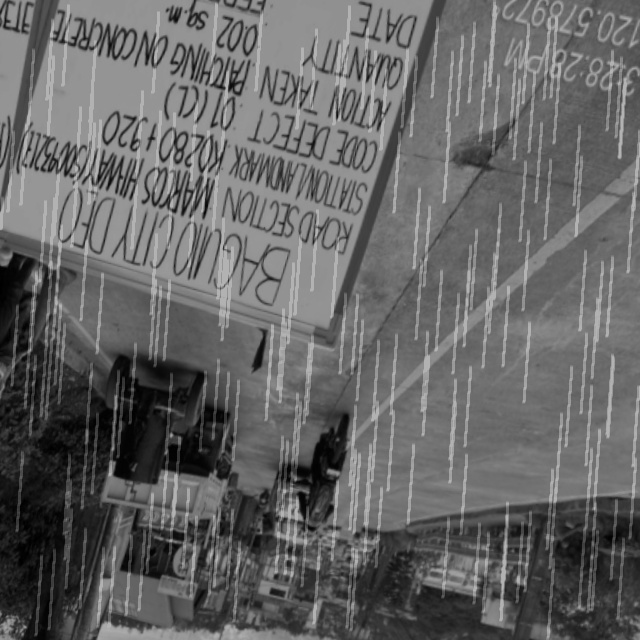 BAGUIO CITY DEO
ROAD SECTION MARCOS HIWAY
STATION/LANDMARK K0280+920
CODE DEFECT : 01 (C)
ACTION TAKEN PATCHING ON CONCRETE
QUANTITY : 002 sq.m
DATE
3:28:28 PM
120.578972